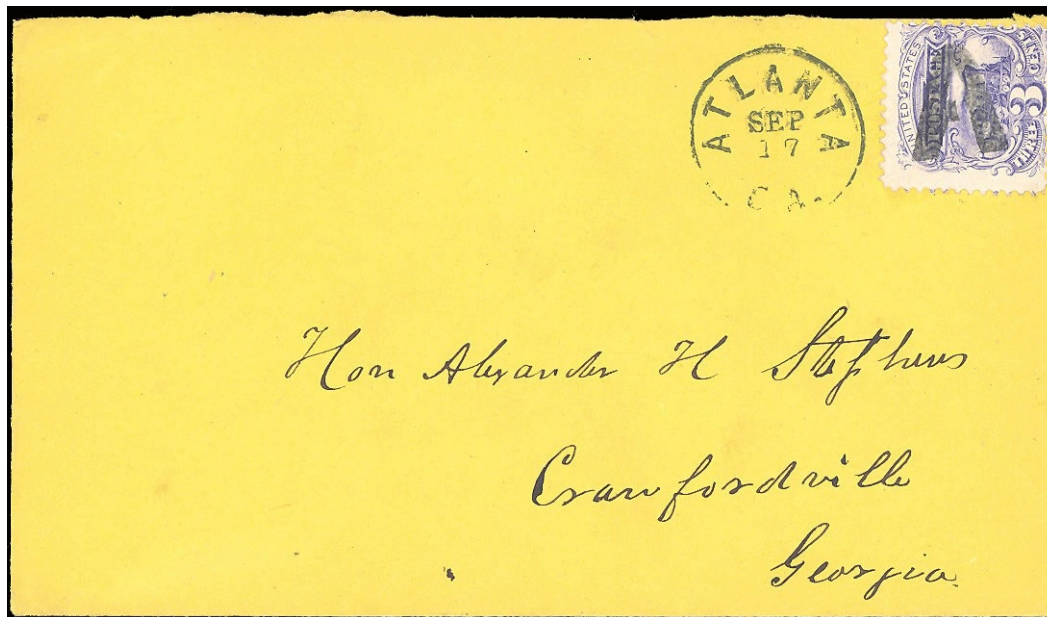 ATLANTA
SEP
17
GA.
UNITED STATES
POSTAGE
3
THREE
Hon Alexander H Stephens
Crawfordville
Georgia